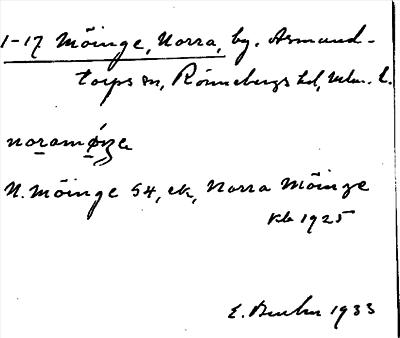 1-17 Möinge, Norra, by. Asmund-
torps sn, Rönnebergs hd, Mlm. l.
noramöŋe
N. Möinge 54, ek, Norra Möinge
Kb 1925
E. 1933